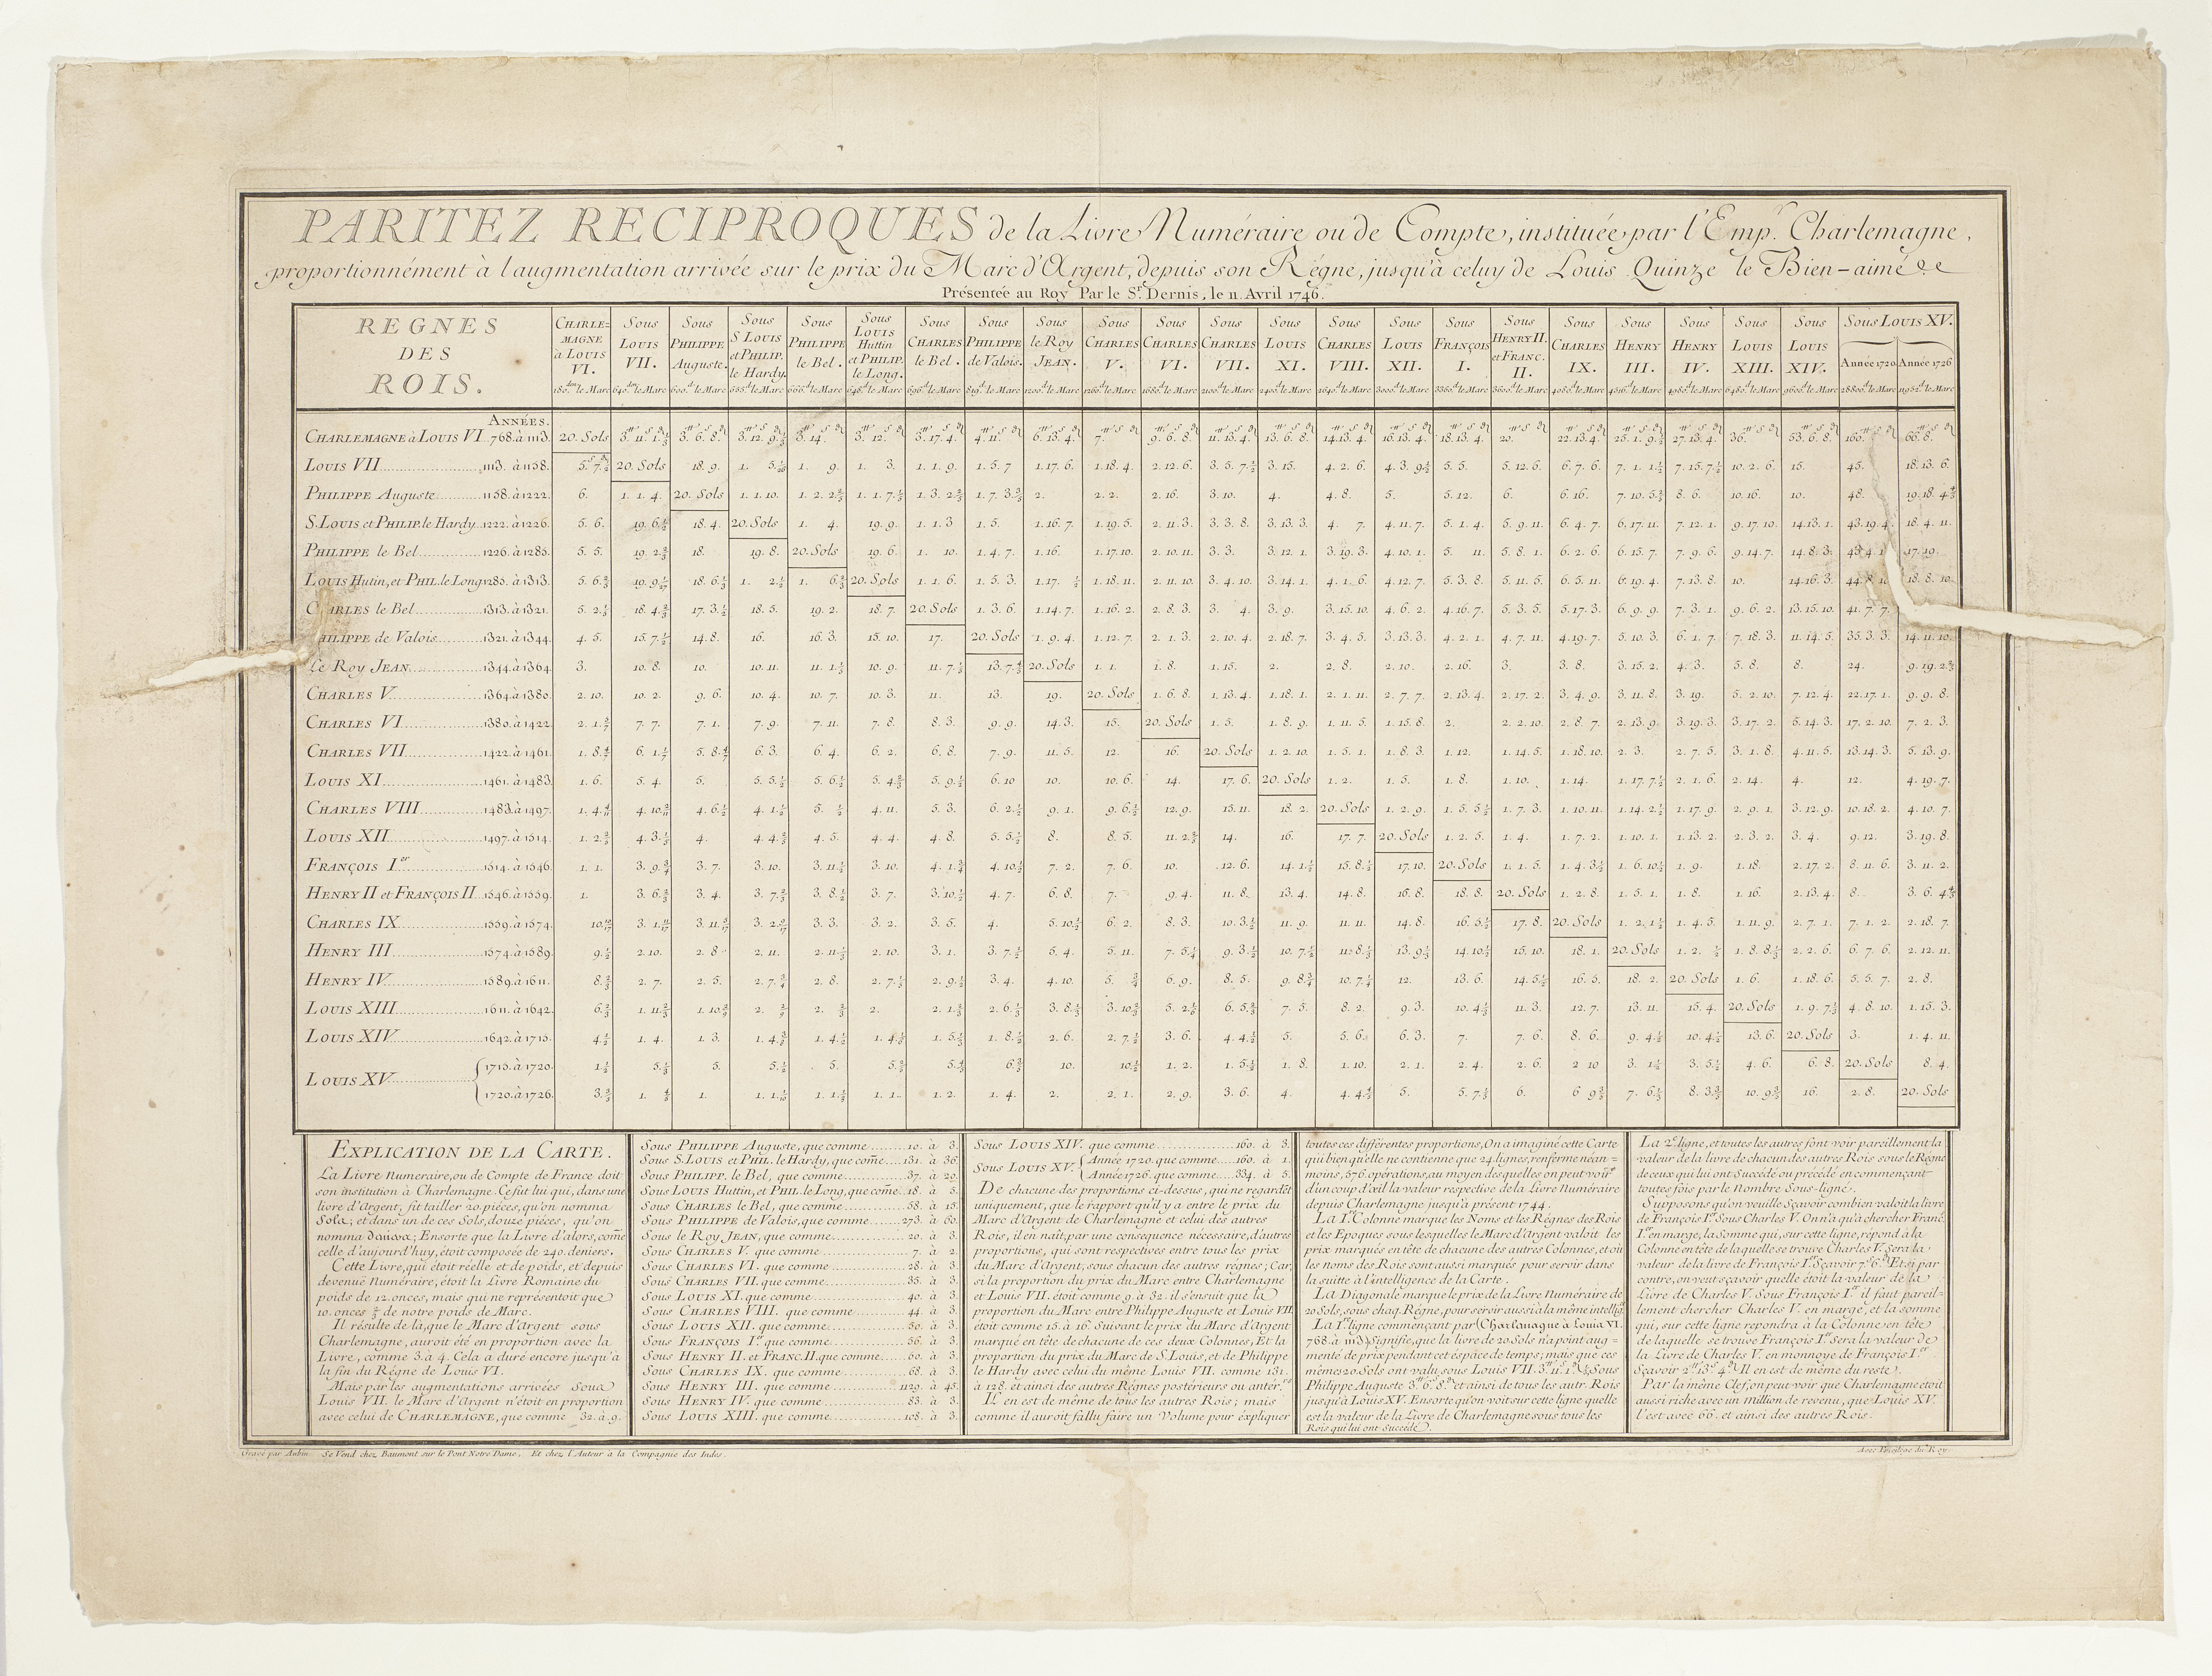 PARITEZ RECIPROQUES de la Livre Numéraire ou de Compte, instituée par l'Emp.r Charlemagne,
proportionnément à l'augmentation arrivée sur le prix du Marc d'Argent, depuis son Régne, jusqu'à celuy de Louis Quinze le Bien-aimé &c
Présentée au Roy Par le Sr. Dernis, le 11. Avril 1746.
REGNES DES ROIS.
CHARLEMAGNE à LOUIS VI. 180.dm le Marc
Sous LOUIS VII. 640.dm le Marc
Sous PHILIPPE Auguste. 600.d le Marc
Sous S LOUIS et PHILIP. le Hardy. 655.d le Marc
Sous PHILIPPE le Bel. 666.d le Marc
Sous LOUIS Huttin et PHILIP. le Long. 648.d le Marc
Sous CHARLES le Bel. 696.d le Marc
Sous PHILIPPE de Valois. 819.d le Marc
Sous le Roy JEAN. 1200.d le Marc
Sous CHARLES V. 1260.d le Marc
Sous CHARLES VI. 1680.d le Marc
Sous CHARLES VII. 2100.d le Marc
Sous LOUIS XI. 2400.d le Marc
Sous CHARLES VIII. 2640.d le Marc
Sous LOUIS XII. 3000.d le Marc
Sous FRANÇOIS I. 3360.d le Marc
Sous HENRY II. et FRANC. II. 3600.d le Marc
Sous CHARLES IX. 4080.d le Marc
Sous HENRY III. 4516.d le Marc
Sous HENRY IV. 4980.d le Marc
Sous LOUIS XIII. 6480.d le Marc
Sous LOUIS XIV. 9600.d le Marc
Sous LOUIS XV.
Année 1720 28800.d le Marc
Année 1726 11952.d le Marc
ANNÉES.
CHARLEMAGNE à LOUIS VI. 768. à 1113. 20. Sols 3. 11. 1 1/3 3. 6. 8. 3. 12. 9 1/3 3. 14. 3. 12. 3. 17. 4. 4. 11. 6. 13. 4. 7. 9. 6. 8. 11. 13. 4. 13. 6. 8. 14. 13. 4. 16. 13. 4. 18. 13. 4. 20. 22. 13. 4. 25. 1. 9 1/3 27. 13. 4. 36. 53. 6. 8. 160. 66. 8.
LOUIS VII. 1113. à 1158. 5. 7 1/2 20. Sols 18. 9. 1. 5 1. 9. 1. 3. 1. 1. 9. 1. 5. 7 1. 17. 6. 1. 18. 4. 2. 12. 6. 3. 5. 7 1/2 3. 15. 4. 2. 6. 4. 3. 9 1/2 5. 5. 5. 12. 6. 6. 7. 6. 7. 1. 1 1/2 7. 15. 7 1/2 10. 2. 6. 15. 45. 18. 13. 6.
PHILIPPE Auguste 1158. à 1222. 6. 1. 1. 4. 20. Sols 1. 1. 10. 1. 2. 2 2/5 1. 1. 7 1/5 1. 3. 2 2/5 1. 7. 3 3/5 2. 2. 2. 2. 16. 3. 10. 4. 4. 8. 5. 5. 12. 6. 6. 16. 7. 10. 5 8. 6. 10. 16. 10. 48. 19. 18. 4 4/5
S. LOUIS et PHILIP. le Hardy 1222. à 1226. 5. 6. 19. 6 1/2 18. 4. 20. Sols 1. 4. 19. 9. 1. 1. 3 1. 5. 1. 16. 7. 1. 19. 5. 2. 11. 3. 3. 3. 8. 3. 13. 3. 4. 7. 4. 11. 7. 5. 1. 4. 5. 9. 11. 6. 4. 7. 6. 17. 11. 7. 12. 1. 9. 17. 10. 14. 13. 1. 43. 19. 4. 18. 4. 11.
PHILIPPE le Bel 1226. à 1285. 5. 5. 19. 2 2/3 18. 19. 8. 20. Sols 19. 6. 1. 10. 1. 4. 7. 1. 16. 1. 17. 10. 2. 10. 11. 3. 3. 3. 12. 1. 3. 19. 3. 4. 10. 1. 5. 11. 5. 8. 1. 6. 2. 6. 6. 15. 7. 7. 9. 6. 9. 14. 7. 14. 8. 3. 17. 19.
LOUIS Hutin, et PHIL. le Long 1285. à 1313. 5. 6 2/3 19. 9 18. 6 1/3 1. 2 1/2 1. 6 2/3 20. Sols 1. 1. 6. 1. 5. 3. 1. 17. 1/2 1. 18. 11. 2. 11. 10. 3. 4. 10. 3. 14. 1. 4. 1. 6. 4. 12. 7. 5. 3. 8. 5. 11. 5. 6. 5. 11. 6. 19. 4. 7. 13. 8. 10. 14. 16. 3. 18. 8. 10.
CHARLES le Bel 1313. à 1321. 5. 2 1/3 18. 4 2/3 17. 3 1/2 18. 5. 19. 2. 18. 7. 20. Sols 1. 3. 6. 1. 14. 7. 1. 16. 2. 2. 8. 3. 3. 4. 3. 9. 3. 15. 10. 4. 6. 2. 4. 16. 7. 5. 3. 5. 5. 17. 3. 6. 9. 9. 7. 3. 1. 9. 6. 2. 13. 15. 10. 41. 7. 7.
PHILIPPE de Valois 1321. à 1344. 4. 5. 15. 7 1/2 14. 8. 16. 16. 3. 15. 10. 17. 20. Sols 1. 9. 4. 1. 12. 7. 2. 1. 3. 2. 10. 4. 2. 18. 7. 3. 4. 5. 3. 13. 3. 4. 2. 1. 4. 7. 11. 4. 19. 7. 5. 10. 3. 6. 1. 7. 7. 18. 3. 11. 14. 5. 35. 3. 3. 14. 11. 10.
Le Roy JEAN 1344. à 1364. 3. 10. 8. 10. 10. 11. 11. 1 1/3 10. 9. 11. 7 1/5 13. 7 4/5 20. Sols 1. 1. 1. 8. 1. 15. 2. 2. 8. 2. 10. 2. 16. 3. 3. 8. 3. 15. 2. 4. 3. 5. 8. 8. 24. 9. 19. 2 2/5
CHARLES V. 1364. à 1380. 2. 10. 10. 2. 9. 6. 10. 4. 10. 7. 10. 3. 11. 13. 19. 20. Sols 1. 6. 8. 1. 13. 4. 1. 18. 1. 2. 1. 11. 2. 7. 7. 2. 13. 4. 2. 17. 2. 3. 4. 9. 3. 11. 8. 3. 19. 5. 2. 10. 7. 12. 4. 22. 17. 1. 9. 9. 8.
CHARLES VI 1380. à 1422. 2. 1 5/7 7. 7. 7. 1. 7. 9. 7. 11. 7. 8. 8. 3. 9. 9. 14. 3. 15. 20. Sols 1. 5. 1. 8. 9. 1. 11. 5. 1. 15. 8. 2. 2. 2. 10. 2. 8. 7. 2. 13. 9. 3. 19. 3. 3. 17. 2. 5. 14. 3. 17. 2. 10. 7. 2. 3.
CHARLES VII 1422. à 1461. 1. 8 4/7 6. 1 1/7 5. 8 4/7 6. 3. 6. 4. 6. 2. 6. 8. 7. 9. 11. 5. 12. 16. 20. Sols 1. 2. 10. 1. 5. 1. 1. 8. 3. 1. 12. 1. 14. 5. 1. 18. 10. 2. 3. 2. 7. 5. 3. 1. 8. 4. 11. 5. 13. 14. 3. 5. 13. 9.
LOUIS XI 1461. à 1483. 1. 6. 5. 4. 5. 5. 5 1/2 5. 6 1/2 5. 4 5. 9 1/2 6. 10 10. 10. 6. 14. 17. 6. 20. Sols 1. 2. 1. 5. 1. 8. 1. 10. 1. 14. 1. 17. 7 1/2 2. 1. 6. 2. 14. 4. 12. 4. 19. 7.
CHARLES VIII 1483. à 1497. 1. 4 4/11 4. 10 4. 6 1/2 4. 1 1/2 5. 1/2 4. 11. 5. 3. 6. 2 1/2 9. 1. 9. 6 1/2 12. 9. 15. 11. 18. 2. 20. Sols 1. 2. 9. 1. 5. 5 1/2 1. 7. 3. 1. 10. 11. 1. 14. 2 1/2 1. 17. 9. 2. 9. 1. 3. 12. 9. 10. 18. 2. 4. 10. 7.
LOUIS XII 1497. à 1514. 1. 2 2/5 4. 3 1/5 4. 4. 4 2/5 4. 5. 4. 4. 4. 8. 5. 5 1/2 8. 8. 5. 11. 2 2/5 14. 16. 17. 7. 20. Sols 1. 2. 5. 1. 4. 1. 7. 2. 1. 10. 1. 1. 13. 2. 2. 3. 2. 3. 4. 9. 12. 3. 19. 8.
FRANÇOIS Ier 1514. à 1546. 1. 1. 3. 9 3/4 3. 7. 3. 10. 3. 11 1/2 3. 10. 4. 1 3/4 4. 10 1/2 7. 2. 7. 6. 10. 12. 6. 14. 1 1/2 15. 8 1/2 17. 10. 20. Sols 1. 1. 5. 1. 4. 3 1/2 1. 6. 10 1/2 1. 9. 1. 18. 2. 17. 2. 8. 11. 6. 3. 11. 2.
HENRY II et FRANÇOIS II 1546. à 1559. 1. 3. 6 2/3 3. 4. 3. 7 2/3 3. 8 1/2 3. 7. 3. 10 1/2 4. 7. 6. 8. 7. 9. 4. 11. 8. 13. 4. 14. 8. 16. 8. 18. 8. 20. Sols 1. 2. 8. 1. 5. 1. 1. 8. 1. 16. 2. 13. 4. 8. 3. 6. 4 4/5
CHARLES IX 1559. à 1574. 10 10/17 3. 1 11/17 3. 11 3. 2 3. 3. 3. 2. 3. 5. 4. 5. 10 1/2 6. 2. 8. 3. 10. 3 1/2 11. 9. 11. 11. 14. 8. 16. 5 1/2 17. 8. 20. Sols 1. 2. 1 1/2 1. 4. 5. 1. 11. 9. 2. 7. 1. 7. 1. 2. 2. 18. 7.
HENRY III 1574. à 1589. 9 1/2 2. 10. 2. 8 2. 11. 2. 11 1/2 2. 10. 3. 1. 3. 7 1/2 5. 4. 5. 11. 7. 5 1/4 9. 3 1/2 10. 7 1/2 11. 8 1/3 13. 9 1/2 14. 10 1/2 15. 10. 18. 1. 20. Sols 1. 2. 1/2 1. 8. 8 1/3 2. 2. 6. 6. 7. 6. 2. 12. 11.
HENRY IV 1589. à 1611. 8 2/3 2. 7. 2. 5. 2. 7 3/4 2. 8. 2. 7 1/5 2. 9 1/2 3. 4. 4. 10. 5. 3/4 6. 9. 8. 5. 9. 8 3/4 10. 7 1/2 12. 13. 6. 14. 5 1/2 16. 5. 18. 2. 20. Sols 1. 6. 1. 18. 6. 5. 5. 7. 2. 8.
LOUIS XIII 1611. à 1642. 6 2/3 1. 11 2/3 1. 10 2/9 2. 2/9 2. 2/3 2. 2. 1 2/3 2. 6 1/3 3. 8 1/3 3. 10 2/3 5. 2 1/4 6. 5 2/3 7. 5. 8. 2. 9. 3. 10. 4 1/3 11. 3. 12. 7. 13. 11. 15. 4. 20. Sols 1. 9. 7 1/3 4. 8. 10. 1. 15. 3.
LOUIS XIV 1642. à 1715. 4 1/2 1. 4. 1. 3. 1. 4 3/8 1. 4 1/2 1. 4 1. 5 1/3 1. 8 1/2 2. 6. 2. 7 1/2 3. 6. 4. 4 1/2 5. 5. 6. 6. 3. 7. 7. 6. 8. 6. 9. 4 1/2 10. 4 1/2 13. 6. 20. Sols 3. 1. 4. 11.
LOUIS XV
1715. à 1720. 1 1/2 5 1/3 5. 5 1/2 5. 5 2/5 5 4/5 6 10. 10 1/2 1. 2. 1. 5 1/2 1. 8. 1. 10. 2. 1. 2. 4. 2. 6. 2 10 3. 1 1/2 3. 5 1/2 4. 6. 6. 8. 20. Sols 8. 4.
1720. à 1726. 3 3/5 1. 4/5 1. 1. 1 1. 1 1/3 1. 1. 1. 2. 1. 4. 2. 2. 1. 2. 9. 3. 6. 4. 4. 4 4/5 5. 5. 7 1/5 6. 6 9 3/5 7. 6 8. 3 3/5 10. 9 3/5 16. 2. 8. 20. Sols
EXPLICATION DE LA CARTE.
La Livre numeraire, ou de Compte de France doit
son institution à Charlemagne. Ce fut lui qui, dans une
livre d'Argent, fit tailler 20 piéces, qu'on nomma
Sols; et dans un de ces Sols, douze piéces, qu'on
nomma deniers; Ensorte que la Livre d'alors, com̃e
celle d'aujourd'huy, étoit composée de 240. deniers.
Cette Livre, qui étoit réelle et de poids, et depuis
devenuë numéraire, étoit la Livre Romaine du
poids de 12. onces, mais qui ne représentoit que
10. onces 2/3 de notre poids de Marc.
Il résulte de là, que le Marc d'Argent sous
Charlemagne, auroit été en proportion avec la
Livre, comme 3. à 4. Cela à duré encore jusqu'à
la fin du Régne de Louis VI.
Mais par les augmentations arrivées Sous
Louis VII. le Marc d'Argent n'étoit en proportion
avec celui de CHARLEMAGNE, que comme 32. à 9.
Sous PHILIPPE Auguste, que comme 10. à 3.
Sous S. LOUIS et PHIL. le Hardy, que com̃e 131. à 36.
Sous PHILIPP. le Bel, que comme 37. à 29.
Sous LOUIS Huttin, et PHIL. le Long, que com̃e 18. à 5.
Sous CHARLES le Bel, que comme 58. à 15.
Sous PHILIPPE de Valois, que comme 273. à 60.
Sous le Roy JEAN, que comme 20. à 3.
Sous CHARLES V. que comme 7. à 2.
Sous CHARLES VI. que comme 28. à 3.
Sous CHARLES VII. que comme 35. à 3.
Sous LOUIS XI. que comme 40. à 3.
Sous CHARLES VIII. que comme 44. à 3.
Sous LOUIS XII. que comme 50. à 3.
Sous FRANÇOIS Ier que comme 56. à 3.
Sous HENRY II. et FRANC. II. que comme 60. à 3.
Sous CHARLES IX. que comme 68. à 3.
Sous HENRY III. que comme 1129. à 45.
Sous HENRY IV. que comme 83. à 3.
Sous LOUIS XIII. que comme 108. à 3.
Sous LOUIS XIV. que comme 160. à 3.
Sous LOUIS XV. Année 1720 que comme 160. à 1.
Année 1726. que comme 334. à 5.
De chacune des proportions ci-dessus, qui ne regardēt
uniquement, que le rapport qu'il y a entre le prix du
Marc d'Argent de Charlemagne et celui des autres
Rois, il en naît, par une consequence nécessaire, d'autres
proportions, qui sont respectives entre tous les prix
du Marc d'Argent, sous chacun des autres régnes; Car,
si la proportion du prix du Marc entre Charlemagne
et Louis VII. étoit comme 9. à 32. il s'ensuit que la
proportion du Marc entre Philippe Auguste et Louis VII.
étoit comme 15. à 16. Suivant le prix du Marc d'Argent
marqué en tête de chacune de ces deux Colonnes, Et la
proportion du prix du Marc de S. Louis, et de Philippe
le Hardy avec celui du même Louis VII. comme 131.
à 128. et ainsi des autres Régnes postérieurs ou antér.rs
Il en est de même de tous les autres Rois; mais
comme il auroit fallu faire un Volume pour expliquer
toutes ces différentes proportions, On a imaginé cette Carte
qui bien qu'elle ne contienne que 24 lignes, renferme néan=
moins, 576. opérations, au moyen desquelles on peut voir
d'un coup d'œil la valeur respective de la Livre Numéraire
depuis Charlemagne jusqu'à présent 1744.
La Ire Colonne marque les Noms et les Régnes des Rois
et les Epoques sous lesquelles le Marc d'Argent valoit les
prix marqués en tête de chacune des autres Colonnes, et où
les noms des Rois sont aussi marqués pour servir dans
la suitte à l'intelligence de la Carte.
La Diagonale marque le prix de la Livre Numéraire de
20 Sols, sous chaq. Régne, pour servir aussi à la même intellig.ce
La 1re ligne commençant par (Charlemagne à Louis VI.
768. à 1113.) signifie, que la livre de 20. Sols n'a point aug=
menté de prix pendant cet éspâce de temps; mais que ces
mêmes 20. Sols ont valu, sous Louis VII. 3.tt 11.s 1.d 1/3 Sous
Philippe Auguste 3.tt 6.s 8.d et ainsi de tous les autr. Rois
jusqu'à Louis XV. Ensorte qu'on voit sur cette ligne quelle
est la valeur de la Livre de Charlemagne sous tous les
Rois qui lui ont Succédé.
La 2e ligne, et toutes les autres font voir pareillement la
valeur de la livre de chacun des autres Rois sous le Régne
de ceux qui lui ont Succédé ou précédé en commençant
toutes fois par le Nombre Sous-ligné.
Supposons qu'on veuille Sçavoir combien valoit la livre
de François Ier Sous Charles V. On n'a qu'à chercher Franç.
Ier en marge, la Somme qui, sur cette ligne, répond à la
Colonne en tête de laquelle se trouve Charles V. Sera la
valeur de la livre de François Ier Sçavoir 7.s 6.d Et si par
contre, on veut sçavoir quelle étoit la valeur de la
Livre de Charles V. Sous François Ier il faut pareil-
lement chercher Charles V. en marge, et la somme
qui, sur cette ligne repondra à la Colonne en tête
de laquelle se trouve François Ier Sera la valeur de
la Livre de Charles V. en monnoye de François I.er
Sçavoir 2.tt 13.s 4.d Il en est de même du reste.
Par la même Clef, on peut voir que Charlemagne etoit
aussi riche avec un million de revenu, que Louis XV.
l'est avec 66. et ainsi des autres Rois.
Gravé par Aubin Se Vend chez Baumont sur le Pont Notre Dame, Et chez l'Auteur à la Compagnie des Indes.
Avec Privilege du Roy